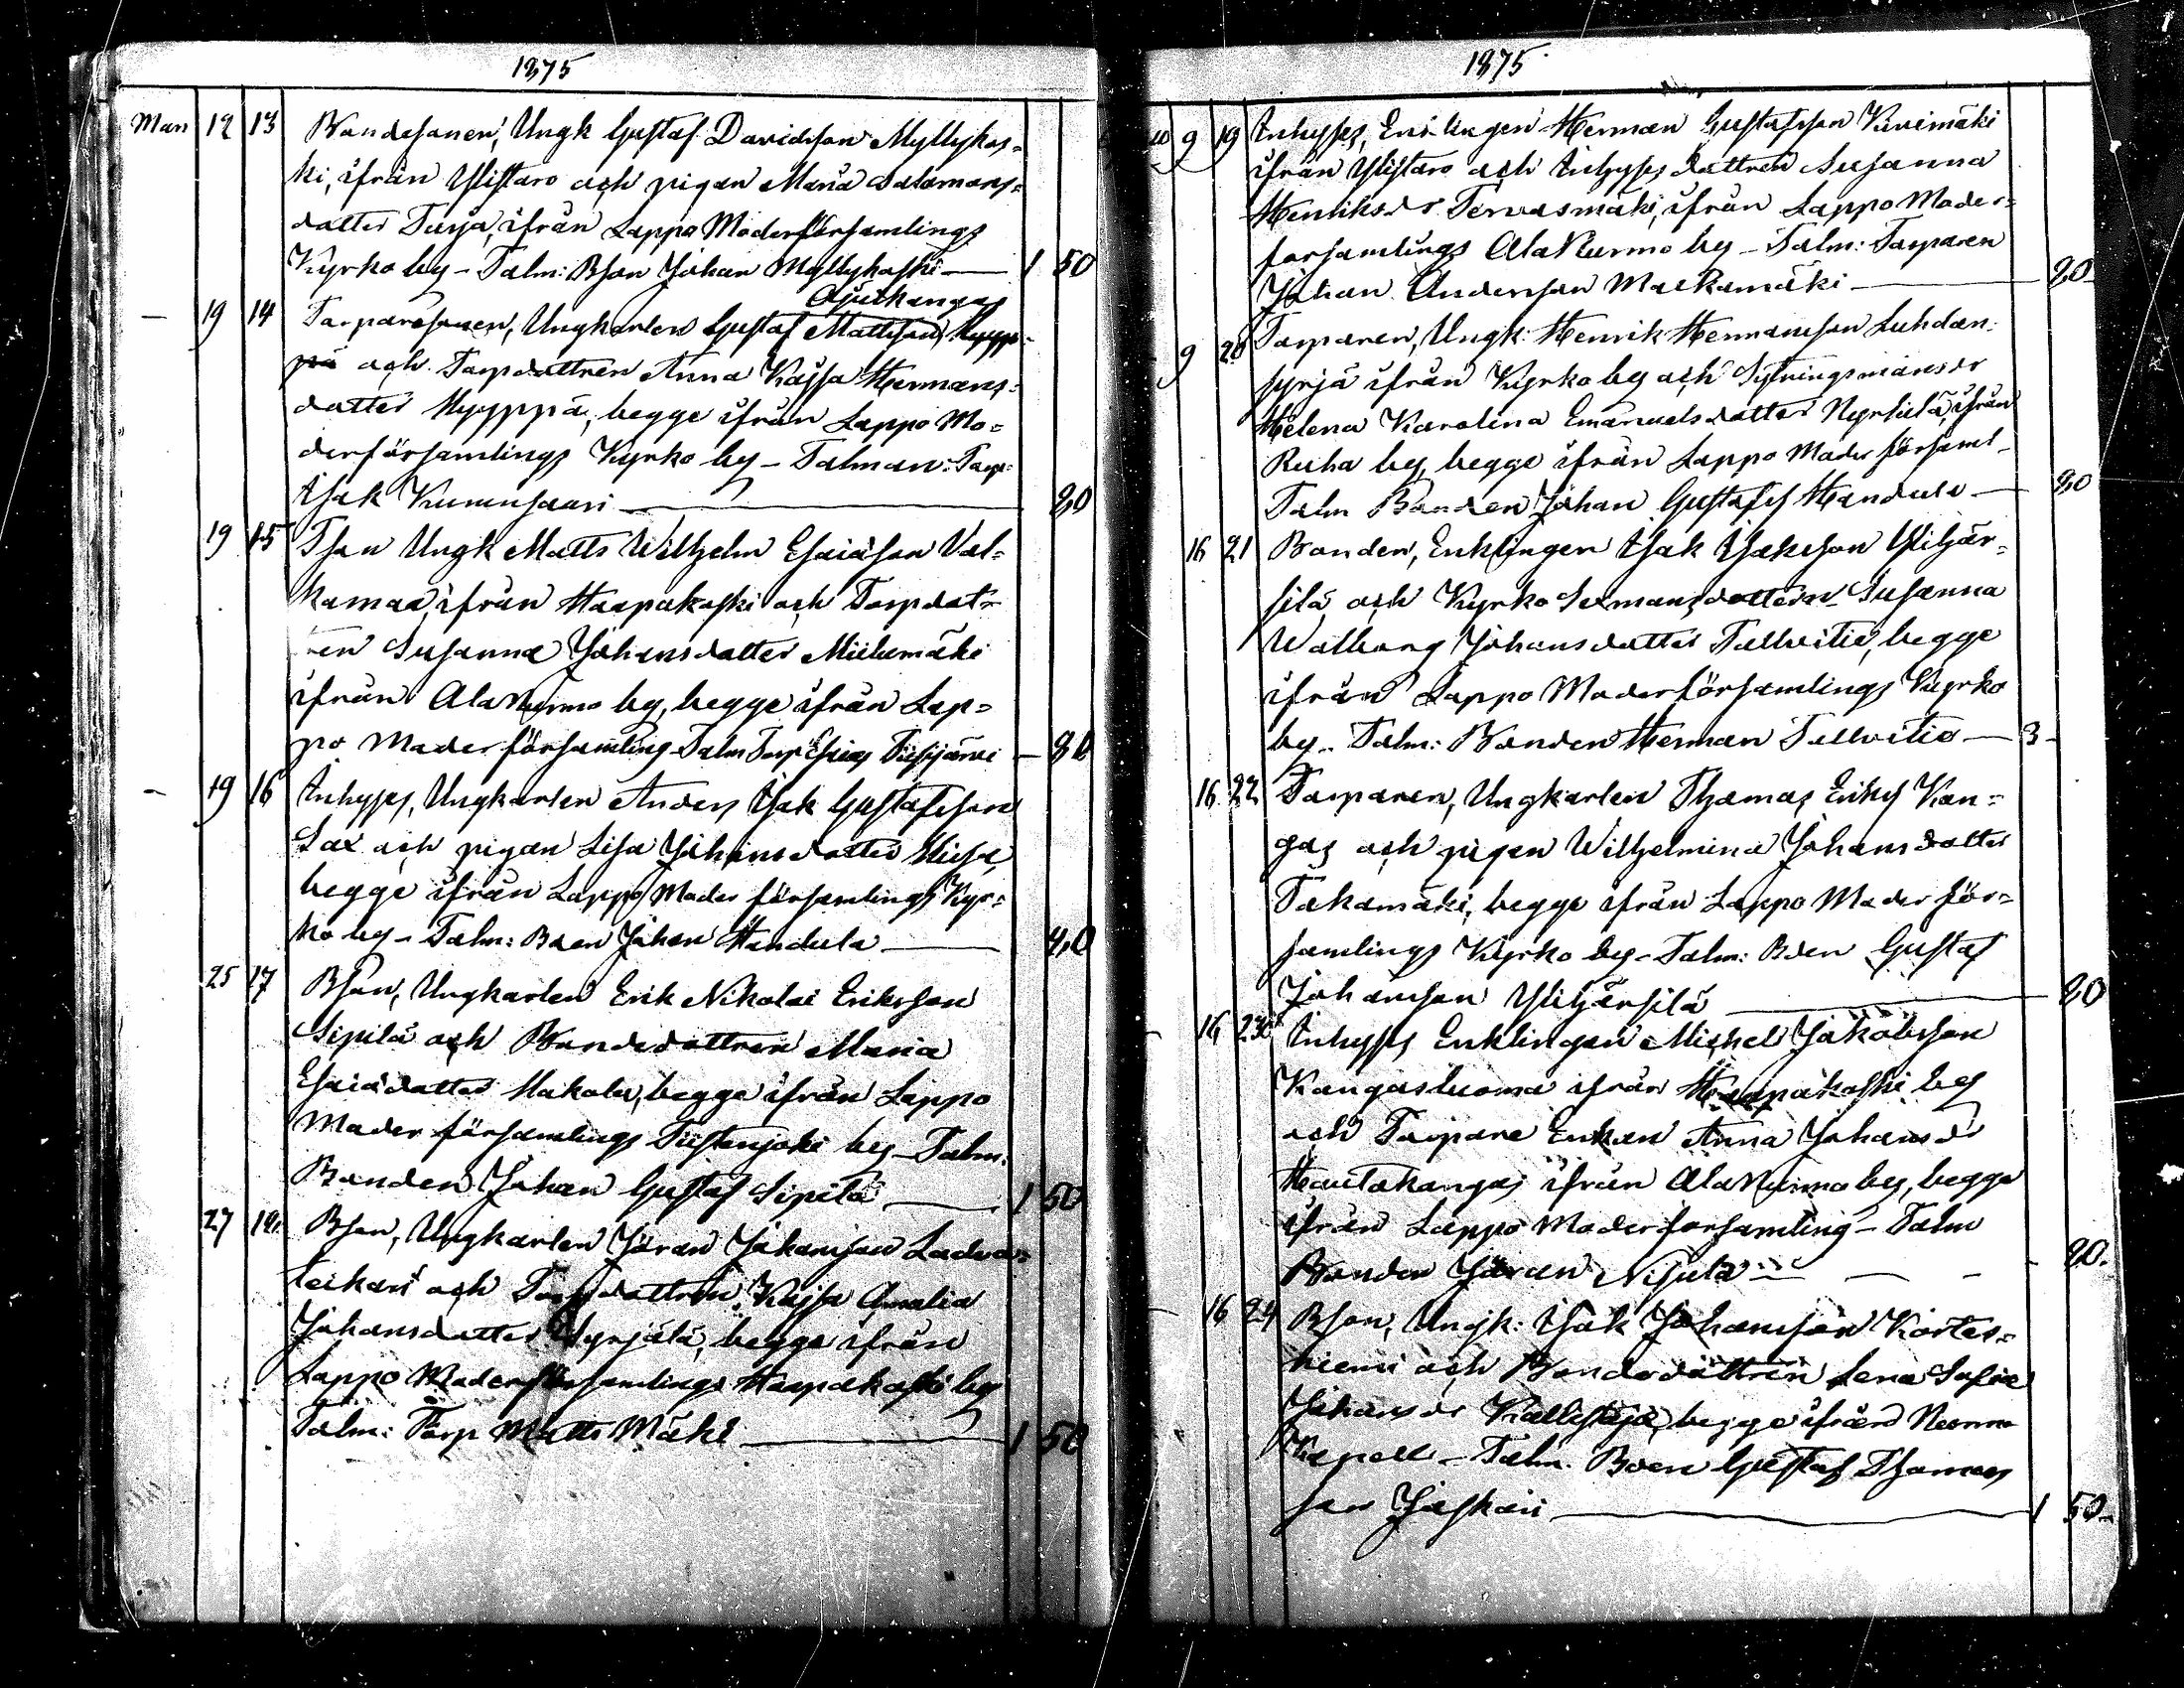 1875
Mars 12 13 Bondesonen, Ungk Gustaf Davidsson Myllykos=
ki, ifrån Ylistaro och pigan Maria Salomons=
dotter Turja, ifrån Lappo Moderförsamlings
Kyrko by - Talm: Bson Johan Myllykoski — 1 50
Ajutkangas
— 19 14 Torparesonen, Ungkarlen Gustaf Mattsson Hyyp=
pä och Torpdottren Anna Kajsa Hermans=
dotter Hyyppä, begge ifrån Lappo Mo=
derförsamlings Kyrko by - Talman: Torp
Isak Kumunsaari — 80
19 15 Tson Ungk Matts Wilhelm Esaiasson Val=
kamaa, ifrån Haapakoski och Torpdot=
ren Susanna Johansdotter Miilumäki
ifrån AlaNurmo by, begge ifrån Lap=
po Moderförsamling Talm Torp Esias Tiisijärvi — 80
— 19 16 Inhyses, Ungkarlen Anders Isak Gustafsson
Sax och pigan Lisa Johansdotter Hissa,
begge ifrån Lappo Moder församlings Kyr=
ko by - Talm: Bden Johan Handula — 40
25 17 Bson, Ungkarlen Erik Nikolai Eriksson
Sipilä och Bondedottren Maria
Esaiædotter Makala, begge ifrån Lappo
Moder församlings Tiistenjoki by - Talm:
Bonden Johan Gustaf Sipilä — 1 50
27 18 Bson, Ungkarlen Jöran Johansson Ladva=
teikari och Torpdottren Kajsa Amalia
Johansdotter Syrjälä, begge ifrån
Lappo Moderförsamlings Haapakoski by
Talm: Torp Matts Mäki — 1 50
1875
9 19 Inhyses, Enklingen Herman Gustafsson Kivimäki
ifrån Ylistaro och Inhyses dottren Susanna
Henriksdr Tervasmäki, ifrån Lappo Moder=
forsamlings AlaNurmo by - Talm: Torparen
Johan Andersson Markamäki — 80
- 9 20 Torparen, Ungk: Henrik Hermansson Luhdan=
syrjä ifrån Kyrko by och Sytningsmansdr
Helena Karolina Emanuelsdotter Nyrhilä, ifrån
Ruha by, begge ifrån Lappo Moder församl-
Talm Bonden Johan Gustafss Handula — 80
16 21 Bonden, Enklingen Isak Isaksson Ylihär=
silä och Kyrko Sexmansdottern Susanna
Walborg Johansdotter Tallvitie, begge
ifrån Lappo Moderförsamlings Kyrko
by - Talm: Bonden Herman Tallvitie — 3 -
16 22 Torparen, Ungkarlen Thomas Eriks Kan=
gas och pigan Wilhelmina Johansdotter
Takamäki, begge ifrån Lappo Moder för=
samlings Kyrko by - Talm: Bden Gustaf
Johansson Ylihärsilä — 80
- 16 23 Inhyses Enklingen Michel Jakobsson
Kangasluoma ifrån Haapakoski by
och Torpare Enkan Anna Johansdr
Hautakangas ifrån AlaNurmo by, begge
ifrån Lappo Moderforsamling - Talm
Bonden Jöran Nisula — 80.
- 16 24 Bson, Ungk: Isak Johansson Kortes=
niemi och Bondedottren Lena Sofia
Johansdr Kallistaja, begge ifrån Nurmo
Kapell - Talm. Bden Gustaf Thomas
son Jaskari — 1 50 -